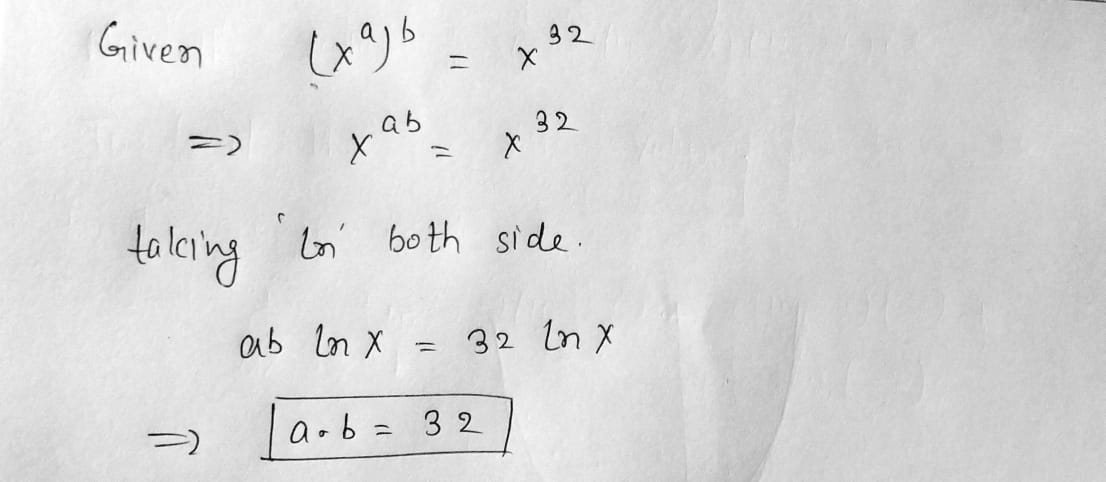 Given (x^a)^b = x^32
=> x^ab = x^32
taking 'ln' both side.
ab ln x = 32 ln x
=> a·b = 32